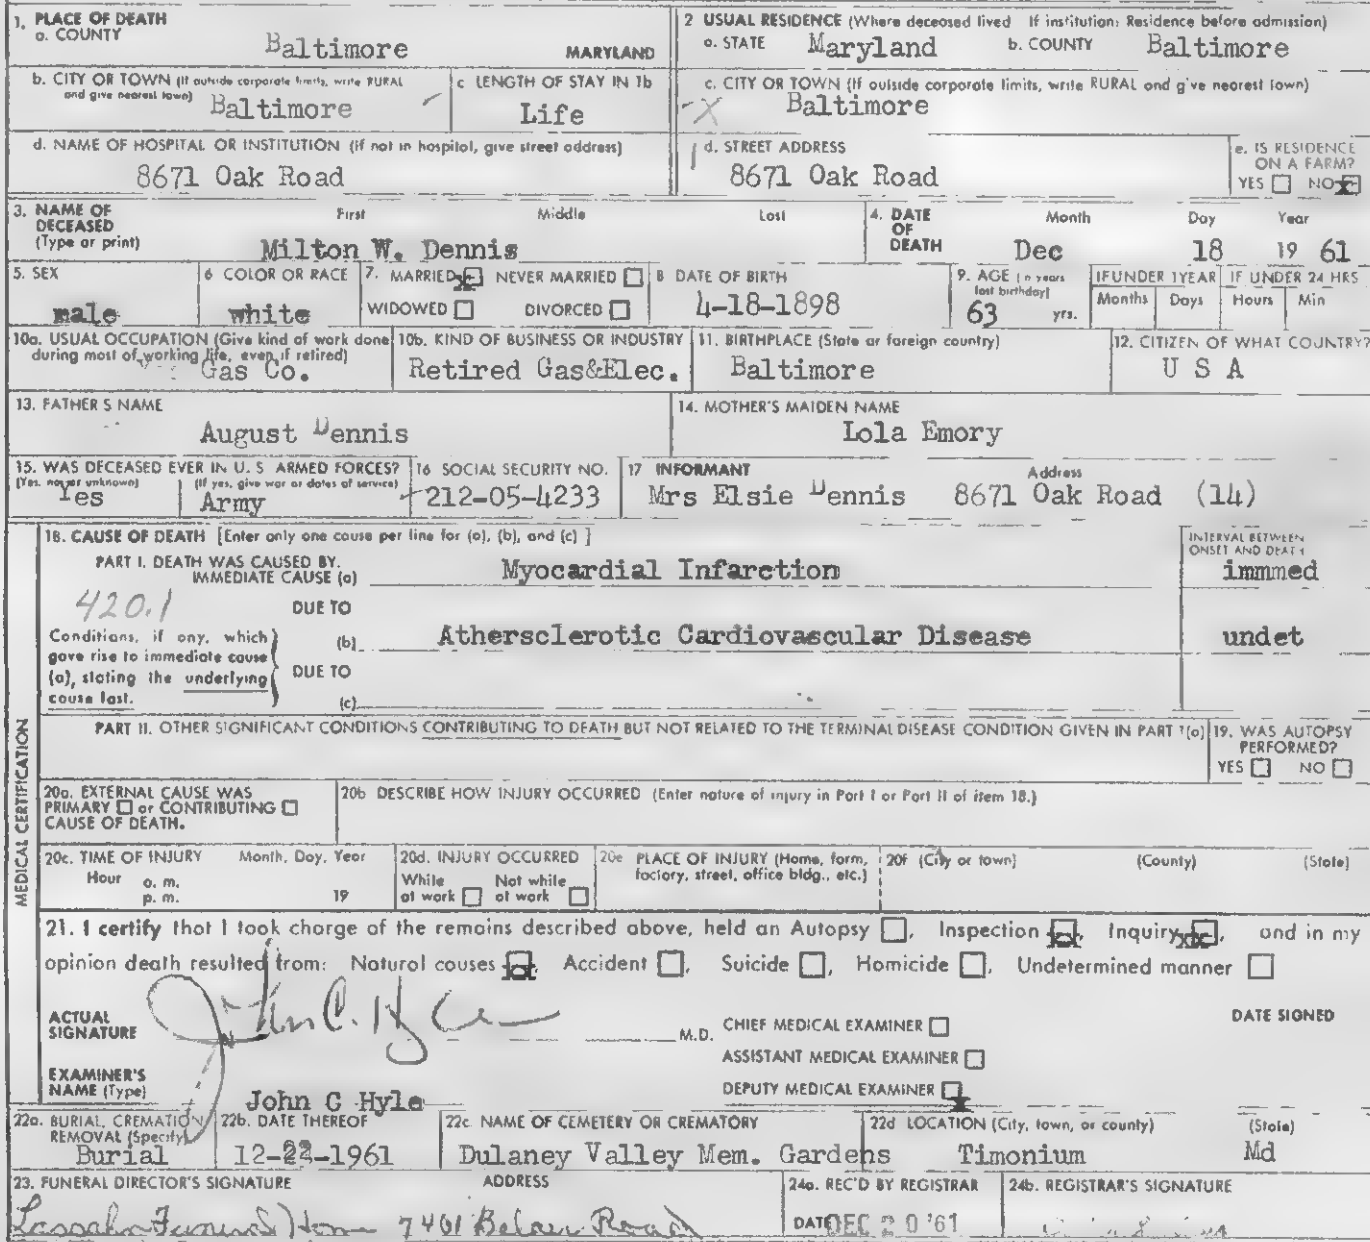 1. PLACE OF DEATH
a. COUNTY Baltimore MARYLAND
2 USUAL RESIDENCE (Where deceased lived If institution: Residence before admission)
a. STATE Maryland b. COUNTY Baltimore
b. CITY OR TOWN (If outside corporate limits, write RURAL and give nearest town) Baltimore
c LENGTH OF STAY IN 1b Life
c. CITY OR TOWN (If outside corporate limits, write RURAL and give nearest town)
Baltimore
d. NAME OF HOSPITAL OR INSTITUTION (if not in hospital, give street address)
8671 Oak Road
d. STREET ADDRESS
8671 Oak Road
e. IS RESIDENCE ON A FARM?
YES NO
3. NAME OF DECEASED (Type or print) First Middle Last
Milton W. Dennis
4. DATE OF DEATH Month Day Year
Dec 18 19 61
5. SEX
male
6 COLOR OR RACE
white
7. MARRIED NEVER MARRIED
WIDOWED DIVORCED
8 DATE OF BIRTH
4-18-1898
9. AGE (In years last birthday)
63 yrs.
IF UNDER 1 YEAR
Months Days
IF UNDER 24 HRS
Hours Min
10a. USUAL OCCUPATION (Give kind of work done during most of working life, even if retired)
Gas Co.
10b. KIND OF BUSINESS OR INDUSTRY
Retired Gas&Elec.
11. BIRTHPLACE (State or foreign country)
Baltimore
12. CITIZEN OF WHAT COUNTRY?
U S A
13. FATHER S NAME
August Dennis
14. MOTHER'S MAIDEN NAME
Lola Emory
15. WAS DECEASED EVER IN U. S ARMED FORCES?
(Yes, no, or unknown) (If yes, give war or dates of service)
Yes Army
16 SOCIAL SECURITY NO.
212-05-4233
17 INFORMANT Address
Mrs Elsie Dennis 8671 Oak Road (14)
MEDICAL CERTIFICATION
18. CAUSE OF DEATH [Enter only one cause per line for (a), (b), and (c) ]
INTERVAL BETWEEN ONSET AND DEATH
PART I. DEATH WAS CAUSED BY.
IMMEDIATE CAUSE (a) Myocardial Infarction immmed
420.1
DUE TO
Conditions, if any, which gave rise to immediate cause (a), stating the underlying cause last.
(b) Athersclerotic Cardiovascular Disease undet
DUE TO
(c)
PART II. OTHER SIGNIFICANT CONDITIONS CONTRIBUTING TO DEATH BUT NOT RELATED TO THE TERMINAL DISEASE CONDITION GIVEN IN PART 1(a)
19. WAS AUTOPSY PERFORMED?
YES NO
20a. EXTERNAL CAUSE WAS
PRIMARY or CONTRIBUTING
CAUSE OF DEATH.
20b DESCRIBE HOW INJURY OCCURRED (Enter nature of injury in Part I or Part II of item 18.)
20c. TIME OF INJURY Month, Day, Year
Hour a. m.
p. m. 19
20d. INJURY OCCURRED
While at work Not while at work
20e PLACE OF INJURY (Home, form, factory, street, office bldg., etc.)
20f (City or town) (County) (State)
21. I certify that I took charge of the remains described above, held an Autopsy , Inspection , Inquiry , and in my
opinion death resulted from: Natural causes , Accident , Suicide , Homicide , Undetermined manner
ACTUAL SIGNATURE John C. Hyle M.D.
CHIEF MEDICAL EXAMINER
DATE SIGNED
ASSISTANT MEDICAL EXAMINER
EXAMINER'S NAME (Type) John C Hyle
DEPUTY MEDICAL EXAMINER
22a. BURIAL, CREMATION REMOVAL (Specify)
Burial
22b. DATE THEREOF
12-22-1961
22c. NAME OF CEMETERY OR CREMATORY
Dulaney Valley Mem. Gardens
22d LOCATION (City, town, or county) (State)
Timonium Md
23. FUNERAL DIRECTOR'S SIGNATURE ADDRESS
Lassahn Funeral Home 7401 Belair Road
24a. REC'D BY REGISTRAR
DATE DEC 20 '61
24b. REGISTRAR'S SIGNATURE